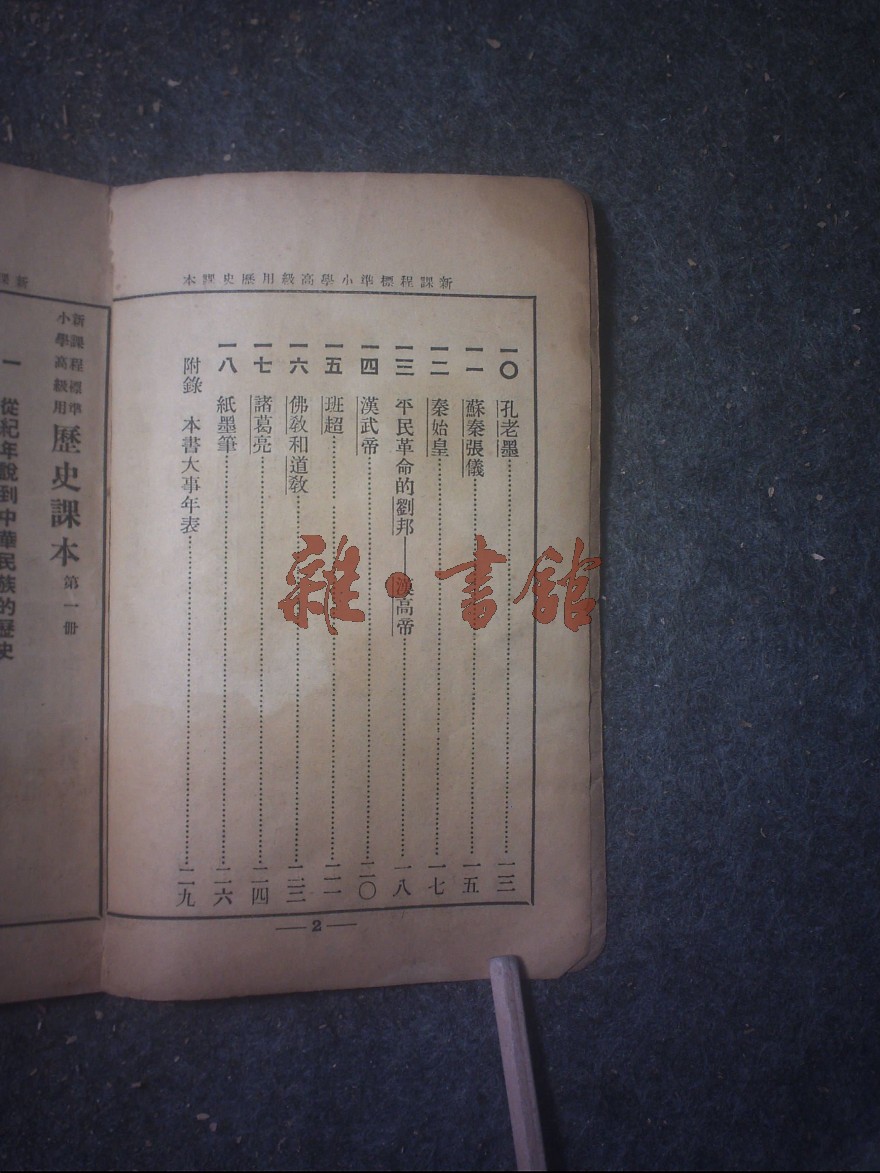 新課程標準小學高級用歷史課本
一〇 孔老墨……一三
一一 蘇秦張儀……一五
一二 秦始皇……一七
一三 平民革命的劉邦——漢高帝……一八
一四 漢武帝……二〇
一五 班超……二一
一六 佛教和道教……二三
一七 諸葛亮……二四
一八 紙墨筆……二六
附錄 本書大事年表……二九
—2—
新課
新課程標準
小學高級用
歷史課本 第一冊
一 從紀年說到中華民族的歷史
雜·書館